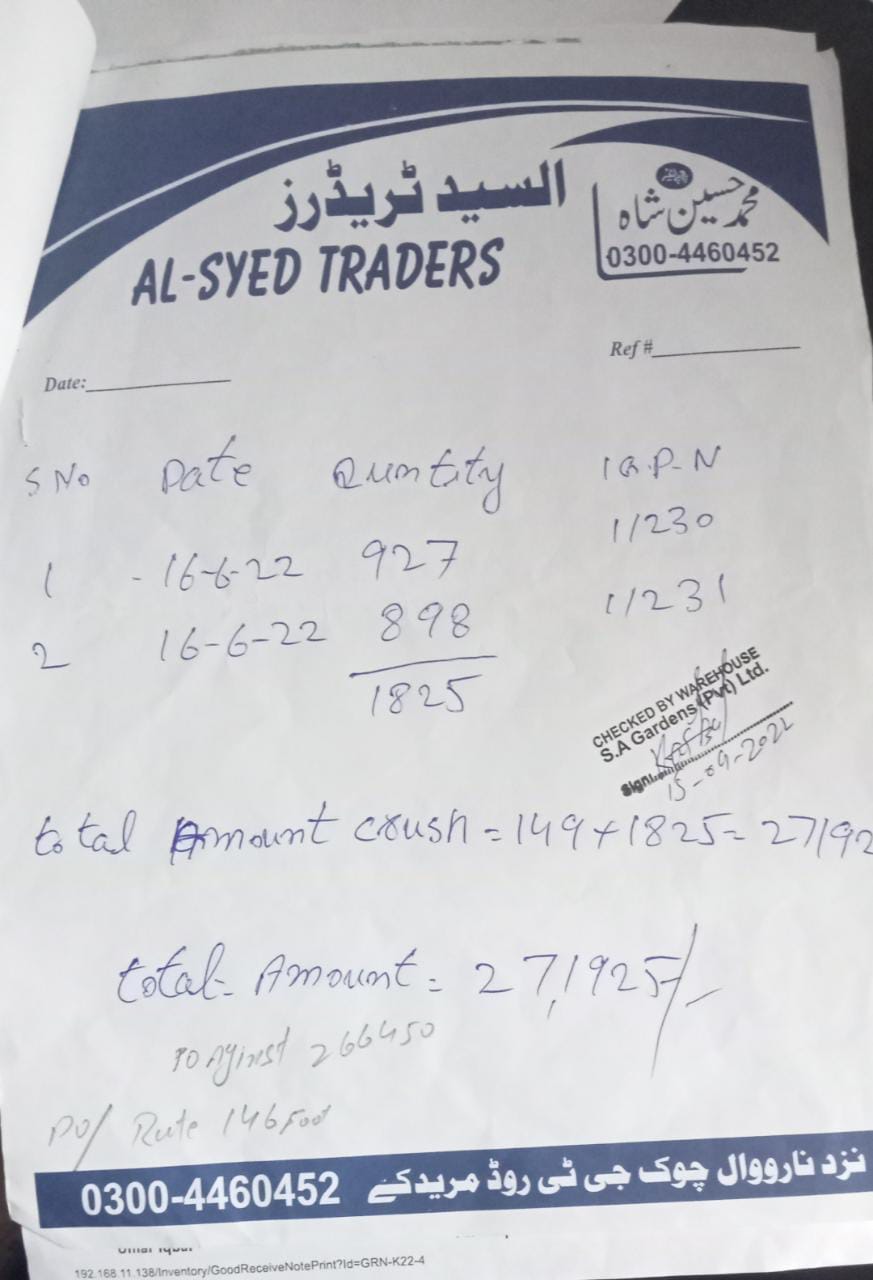 السید ٹریڈرز
محمد حسین شاہ
AL-SYED TRADERS
0300-4460452
Ref #
Date:
S No Date Quntity IG.P-N
1 - 16-6-22 927 11230
2 16-6-22 898 11231
1825
CHECKED BY WAREHOUSE
S.A Gardens (Pvt) Ltd.
Sign:
15-09-2022
total Amount crush = 149 + 1825 = 27192
total- Amount = 27,1925/-
PO Aginst 266450
PO/ Rute 146 Foot
0300-4460452 نزد نارووال چوک جی ٹی روڈ مریدکے
192.168.11.138/Inventory/GoodReceiveNotePrint?Id=GRN-K22-4